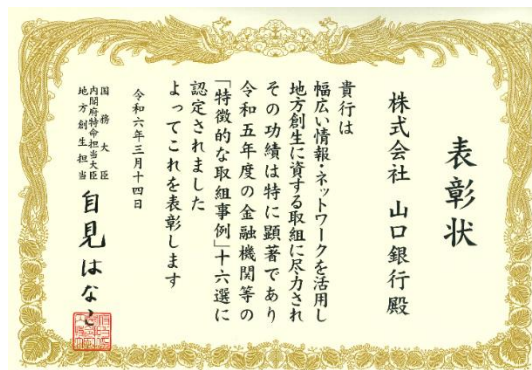 表彰状
株式会社 山口銀行殿
貴行は
幅広い情報・ネットワークを活用し
地方創生に資する取組に尽力され
その功績は特に顕著であり
令和五年度の金融機関等の
「特徴的な取組事例」十六選に
認定されました
よってこれを表彰します
令和六年三月十四日
国務大臣
内閣府特命担当大臣
地方創生担当
自見はなこ